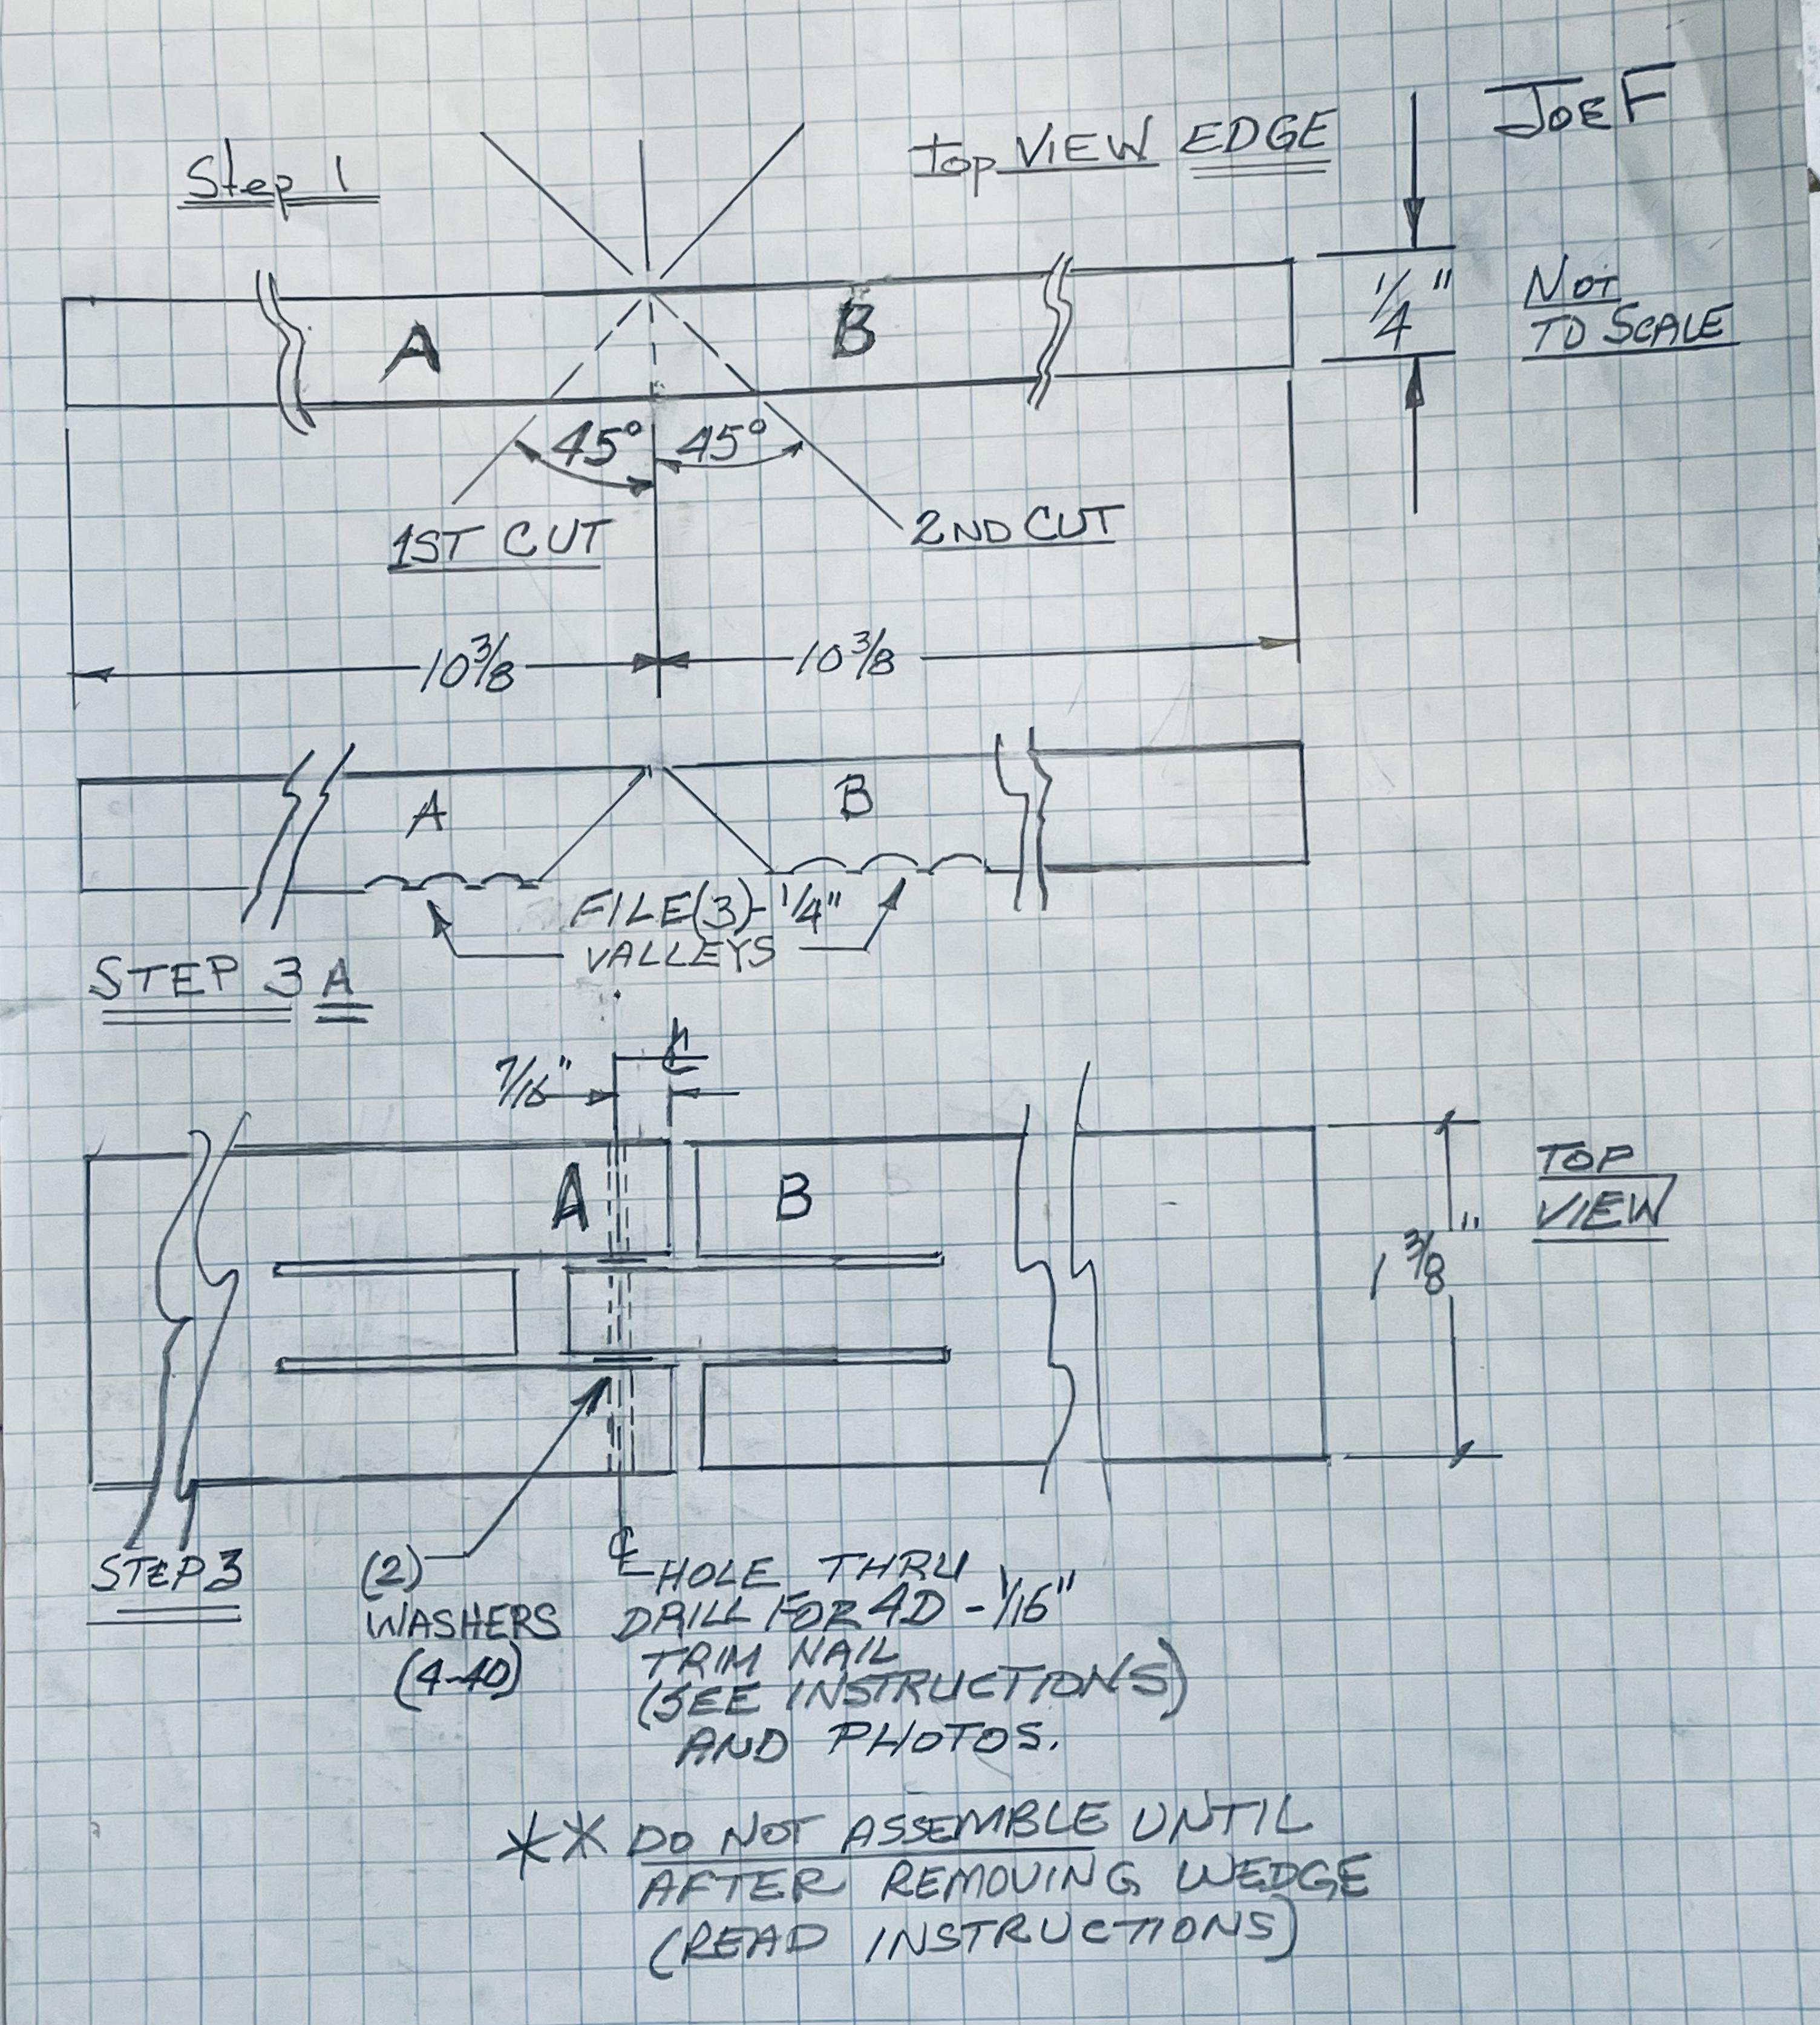 JOE F
Step 1
top VIEW EDGE
A
B
1/4"
NOT
TO SCALE
45° 45°
1ST CUT
2ND CUT
10 3/8
10 3/8
A
B
FILE(3)-1/4"
VALLEYS
STEP 3 A
7/16"
℄
A
B
TOP
VIEW
1 3/8"
STEP 3
(2)
WASHERS
(4-40)
℄ HOLE THRU
DRILL FOR 4D - 1/16"
TRIM NAIL
(SEE INSTRUCTIONS)
AND PHOTOS.
** DO NOT ASSEMBLE UNTIL
AFTER REMOVING WEDGE
(READ INSTRUCTIONS)